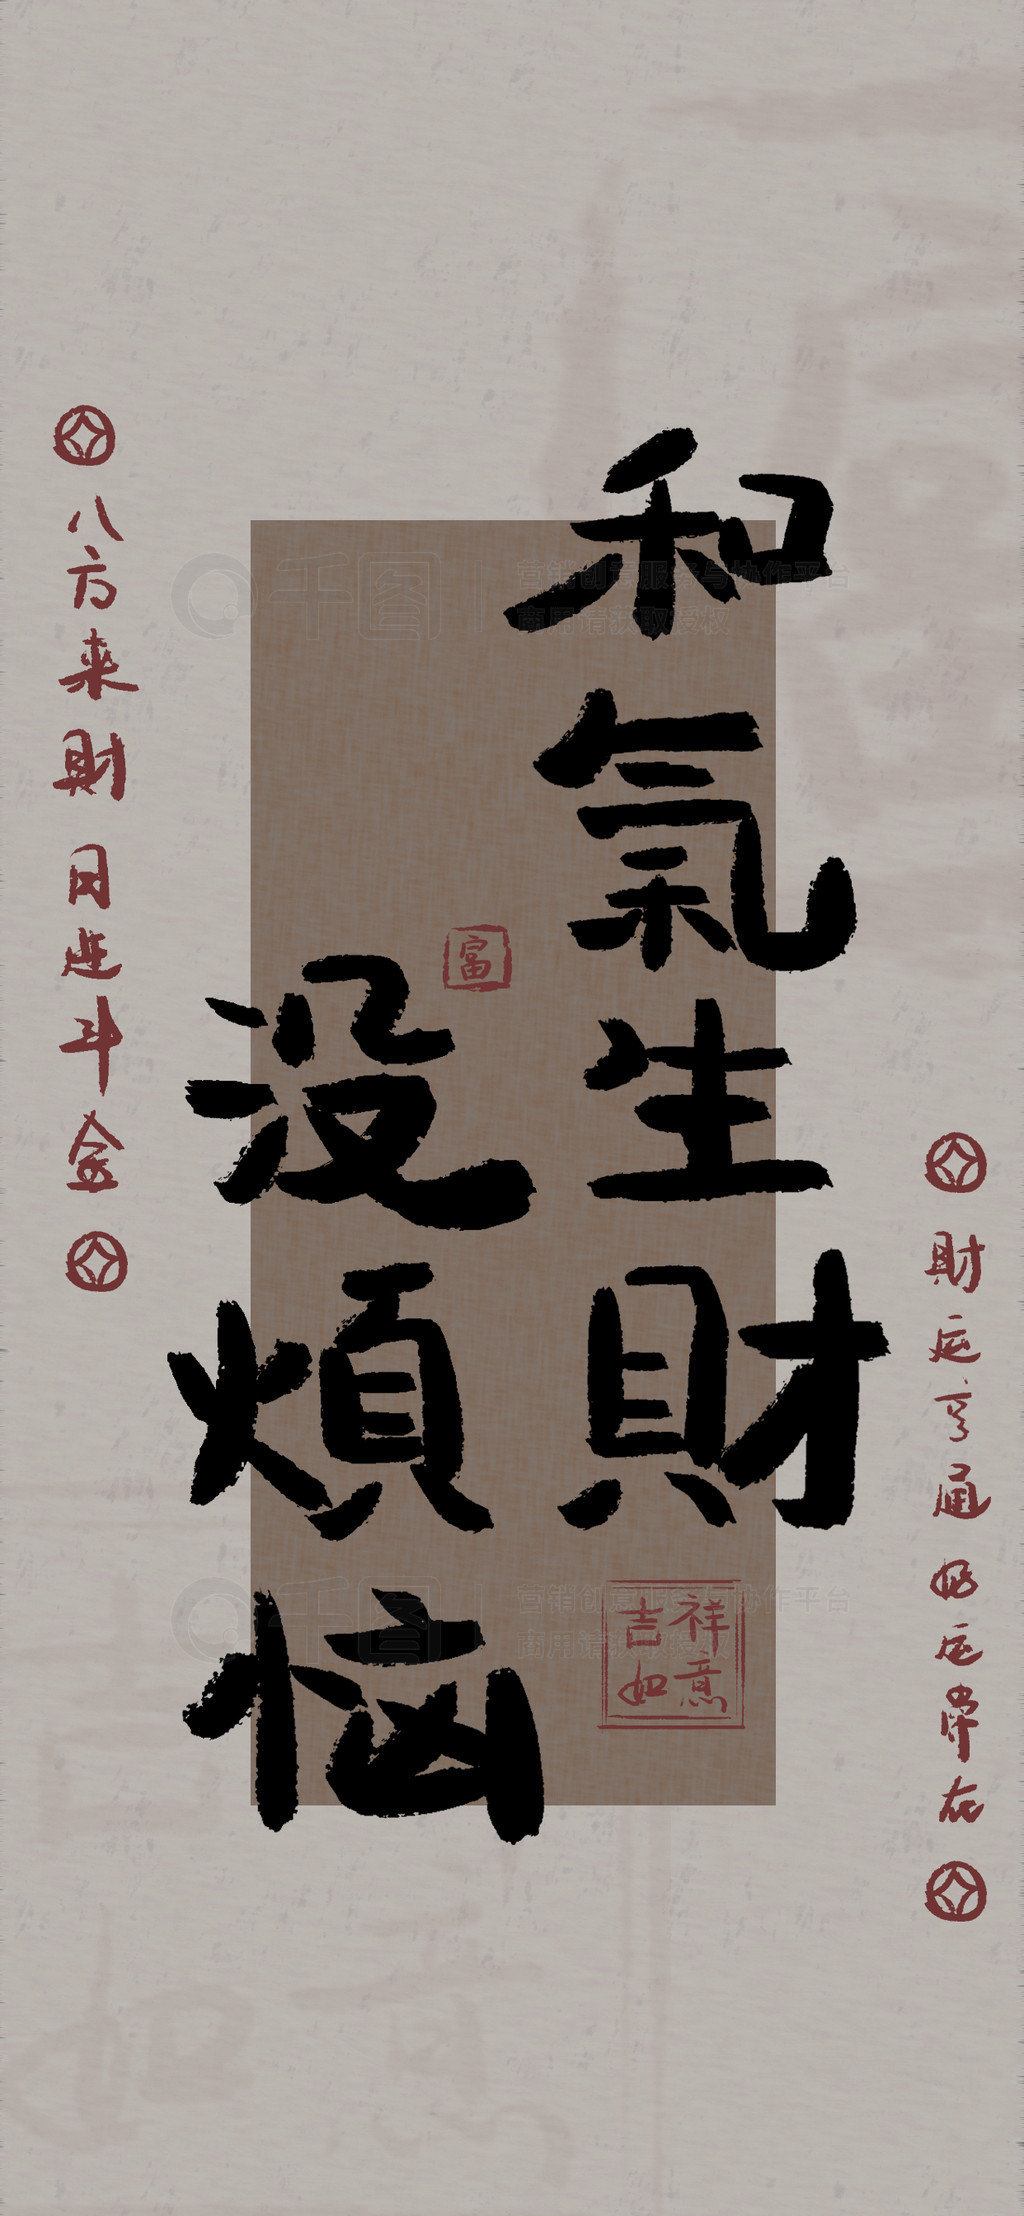 和氣生財
没煩惱
富
吉祥
如意
八方来財 日进斗金
財运亨通 好运常在
千图
营销创意服务与协作平台
商用请获取授权
千图
营销创意服务与协作平台
商用请获取授权